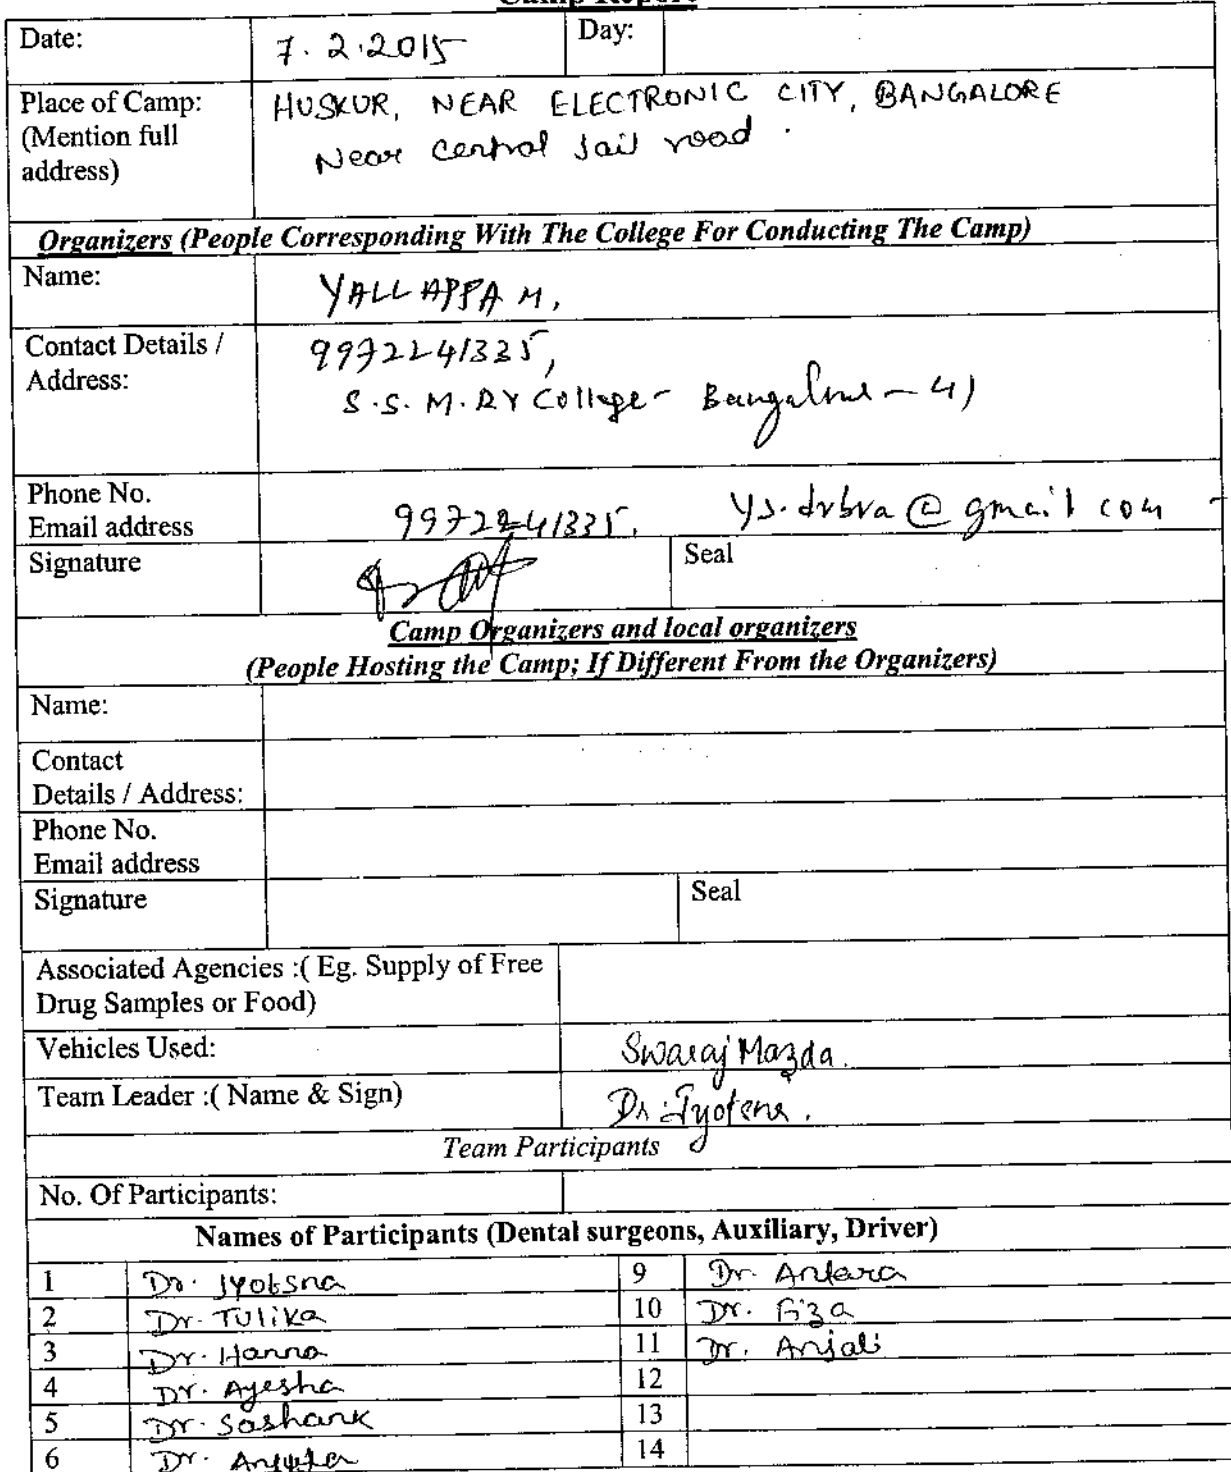 Camp Report
Date: 7.2.2015 Day:
Place of Camp: HUSKUR, NEAR ELECTRONIC CITY, BANGALORE
(Mention full Near central Jail road.
address)
Organizers (People Corresponding With The College For Conducting The Camp)
Name: YALLAPPA M,
Contact Details / 9972241335,
Address: S.S.M.RV College - Bangalore - 41
Phone No. 9972241335. ys.drbra@gmail com
Email address
Signature Seal
Camp Organizers and local organizers
(People Hosting the Camp; If Different From the Organizers)
Name:
Contact
Details / Address:
Phone No.
Email address
Signature Seal
Associated Agencies :( Eg. Supply of Free
Drug Samples or Food)
Vehicles Used: Swaraj Mazda.
Team Leader :( Name & Sign) Dr. Jyotsna.
Team Participants
No. Of Participants:
Names of Participants (Dental surgeons, Auxiliary, Driver)
1 Dr. Jyotsna 9 Dr. Antara
2 Dr. Tulika 10 Dr. Fiza
3 Dr. Hanna 11 Dr. Anjali
4 Dr. Ayesha 12
5 Dr. Sashank 13
6 Dr. 14